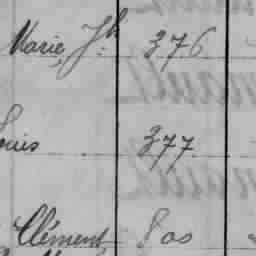 Marie, Jh 376
ouis 377
Clément, 800